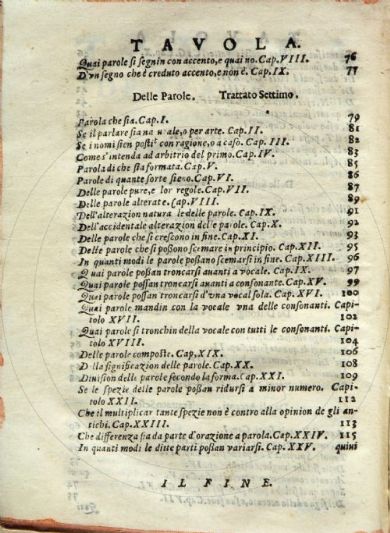 TAVOLA.
Quai parole si segnin con accento, e quai no. Cap. VIII. 76
D'vn segno che è creduto accento, e non è. Cap. IX. 77
Delle Parole. Trattato Settimo.
Parola che sia. Cap. I. 79
Se il parlare sia naturale, o per arte. Cap. II. 81
Se i nomi sien posti con ragione, o a caso. Cap. III. 82
Come s'intenda ad arbitrio del primo. Cap. IV. 83
Parola di che sia formata. Cap. V. 85
Parole di quante sorte sieno. Cap. VI. 86
Delle parole pure, e lor regole. Cap. VII. 87
Delle parole alterate. Cap. VIII. 89
Dell'alterazion naturale delle parole. Cap. IX. 91
Dell'accidentale alterazion delle parole. Cap. X. 92
Delle parole che si crescono in fine. Cap. XI. 93
Delle parole che si possono scemare in principio. Cap. XII. 95
In quanti modi le parole possano scemarsi in fine. Cap. XIII. 96
Quai parole possan troncarsi auanti a vocale. Cap. IX. 97
Quai parole possan troncarsi auanti a consonante. Cap. XV. 99
Quai parole possan troncarsi d'vna vocal sola. Cap. XVI. 100
Quai parole mandin con la vocale vna delle consonanti. Capi
tolo XVII. 102
Quai parole si tronchin della vocale con tutti le consonanti. Cap.
XVIII. 104
Delle parole composte. Cap. XIX. 106
Della significazion delle parole. Cap. XX. 108
Diuision delle parole secondo la forma. Cap. XXI. 109
Se le spezie delle parole possan ridursi a minor numero. Capi
tolo XXII. 112
Che il multiplicar tante spezie non è contro alla opinion de gli an-
tichi. Cap. XXIII. 113
Che differenza sia da parte d'orazione a parola. Cap. XXIV. 115
In quanti modi le ditte parti possan variarsi. Cap. XXV. quiui
IL FINE.